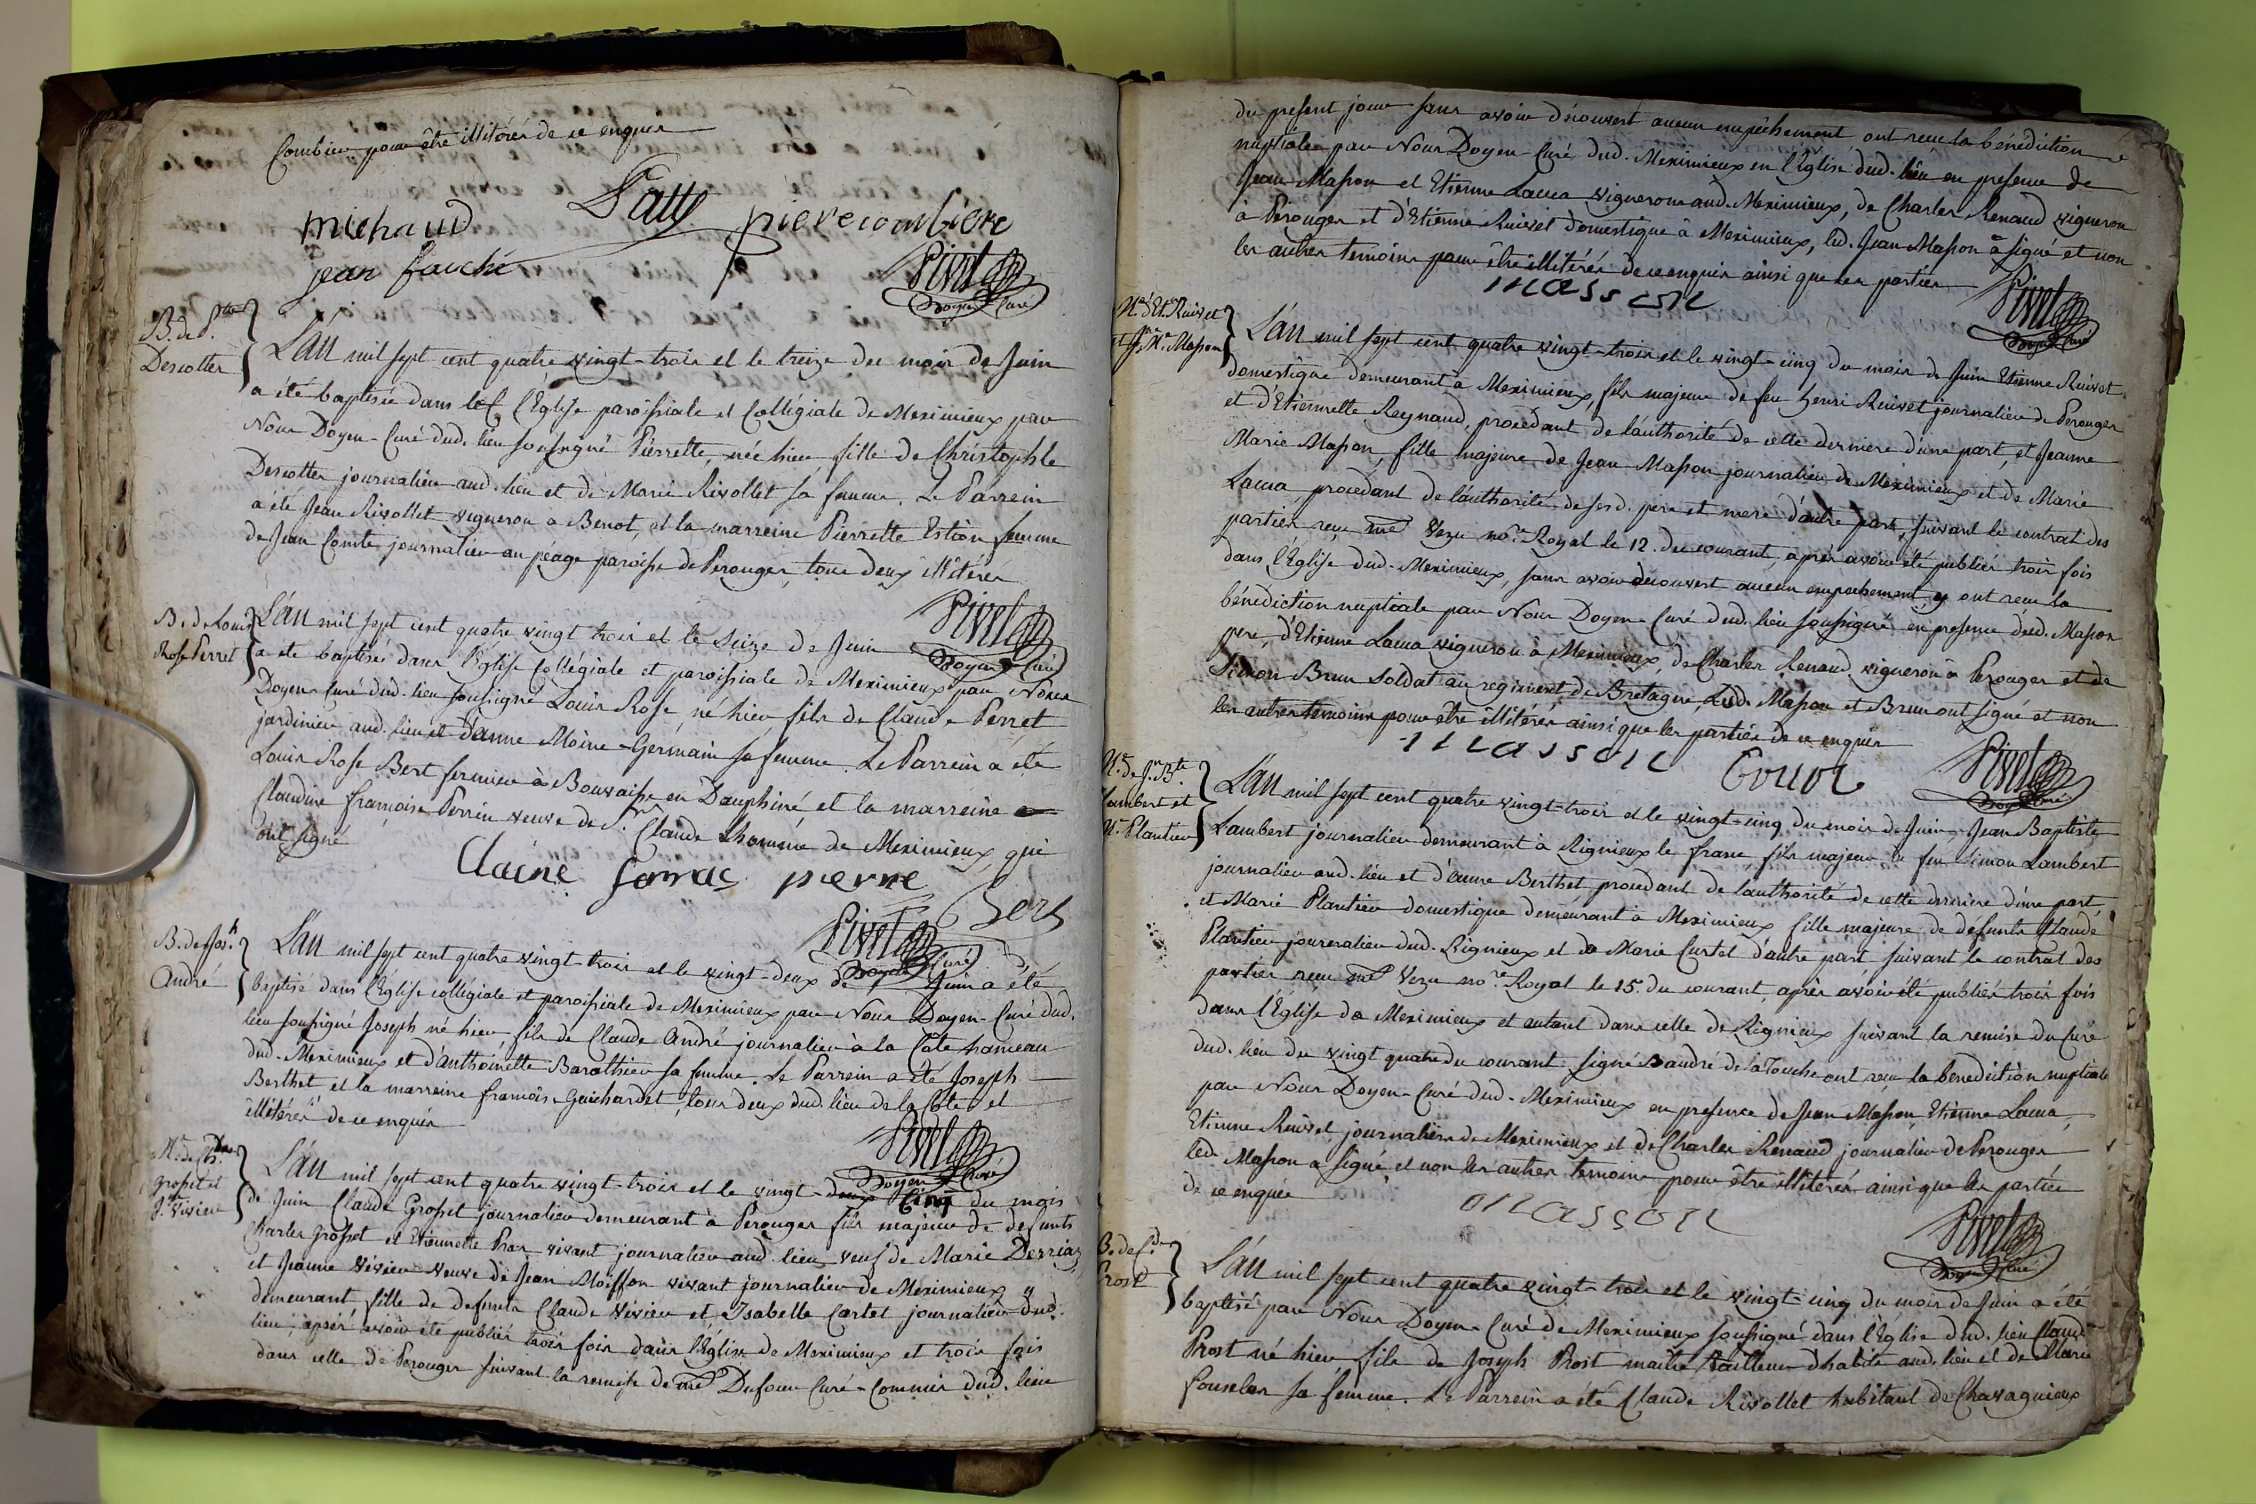 Combier pour être illitérés de ce enquis
Patty
michaud pierre combiere
jean fauché
Pivet
Doyen Curé
B. de P.tte
Descottes
L'an mil sept cent quatre vingt-trois et le treize du mois de Juin
a été baptisée dans l'Eglise paroissiale et Collégiale de Meximieux par
Nous Doyen-Curé dud. lieu soussigné Pierrette, née hier fille de Christophle
Descottes journalier aud. lieu et de Marie Rivollet sa femme. Le Parrein
a été Jean Rivollet vigneron a Benot, et la marreine Pierrette Estion femme
de Jean Comte journalier au péage paroisse de Perouges, tous deux illitérés
Pivet
Doyen Curé
B. de Louis
Rose Perret
L'an mil sept cent quatre vingt trois et le seize de Juin
a été baptisé dans l'Eglise Collégiale et paroissiale de Meximieux par Nous
Doyen-Curé dud. lieu soussigné Louis Rose, né hier fils de Claude Perret
jardinier aud. lieu et d'anne Moine-Germain sa femme. Le Parrein a été
Louis Rose Bert fermier à Bouvaise en Dauphiné et la marreine
Claudine françoise Perrin veuve de S.r Claude Lhomme de Meximieux, qui
ont signé
Bert
Pivet
Doyen Curé
B. de Jos.h
André
L'an mil sept cent quatre vingt-trois et le vingt-deux de Juin a été
baptisé dans l'Eglise collégiale et paroissiale de Meximieux par Nous Doyen-Curé dud.
lieu soussigné Joseph né hier fils de Claude André journalier à la Côte hameau
dud. Meximieux et d'anthoinette Barathieu sa femme. Le Parrein a été Joseph
Berthet et la marreine françoise Guichardet, tous deux dud. lieu de la Côte et
illitérés de ce enquis
Pivet
Doyen Curé
M. de Cl.de
Grosset et
J. Vivier
L'an mil sept cent quatre vingt-trois et le vingt-deux cinq du mois
de Juin Claude Grosset journalier demeurant à Perouges fils majeur de defunts
Charles Grosset et Etiennette Pras vivant journalier aud. lieu, veuf de Marie Derriaz
et Jeanne Vivier veuve de Jean Moisson vivant journalier de Meximieux y
demeurant fille de defunts Claude Vivier et Isabelle Cartet journalier dud.
lieu, après avoir été publiés trois fois dans l'Eglise de Meximieux et trois fois
dans celle de Perouges suivant la remise de me Dufour Curé-Commis dud. lieu
du présent jour sans avoir découvert aucun empêchement ont recu la bénédiction
nuptiale par Nous Doyen-Curé dud. Meximieux en l'Eglise dud. lieu en presence de
Jean Masson et Etienne Lacua vignerons aud. Meximieux, de Charles Renaud vigneron
à Perouges et d'Etienne Ruivet domestique à Meximieux, led. Jean Masson a signé et non
les autres temoins pour être illitérés de ce enquis ainsi que les parties
masson
Pivet
Doyen Curé
M. d'Et. Ruivet
et J.ne M.e Masson
L'an mil sept cent quatre vingt-trois et le vingt-cinq du mois de Juin Etienne Ruivet
domestique demeurant à Meximieux, fils majeur de feu henri Ruivet journalier de Perouges
et d'Etiennette Reynaud, procédant de l'authorité de cette derniere d'une part, et Jeanne
Marie Masson, fille majeure de Jean Masson journalier de Meximieux et de Marie
Lacua, procédant de l'authorité de sesd. pere et mere d'autre part, suivant le contrat des
parties recu me Vezu no.re Royal le 12. du courant, après avoir été publiés trois fois
dans l'Eglise dud. Meximieux, sans avoir découvert aucun empechement y ont recu la
bénediction nuptiale par Nous Doyen-Curé dud. lieu soussigné en présence dud. Masson
pere, d'Etienne Lacua vigneron à Meximieux de Charles Renaud vigneron à Perouges et de
Simon Brun soldat au regiment de Bretagne, Led. Masson et Brun ont signé et non
les autres temoins pour être illitérés ainsi que les parties de ce enquis
masson
Pivet
Doyen Curé
M. de J.n B.te
Lambert et
M.e Plantier
L'an mil sept cent quatre vingt-trois et le vingt-cinq du mois de Juin Jean Baptiste
Lambert journalier demeurant à Rignieux le franc, fils majeur de feu Simon Lambert
journalier aud. lieu et d'anne Berthet procédant de l'authorité de cette derniere d'une part,
et Marie Plantier domestique demeurant à Meximieux fille majeure de défunts Claude
Plantier journalier dud. Rignieux et de Marie Curtet d'autre part suivant le contrat des
parties recu me Vezu no.re Royal le 15. du courant, après avoir été publiés trois fois
dans l'Eglise de Meximieux et autant dans celle de Rignieux suivant la remise du Curé
dud. lieu du vingt quatre du courant signé Baudré de la Touche ont recu la benediction nuptiale
par Nous Doyen-Curé dud. Meximieux en presence de Jean Masson, Etienne Lacua,
Etienne Ruivet, journaliers de Meximieux et de Charles Renaud journalier de Perouges
led. Masson a signé et non les autres temoins pour être illitérés ainsi que les parties
de ce enquis
masson
Pivet
Doyen Curé
B. de C.de
Prost
L'an mil sept cent quatre vingt-trois et le vingt-cinq du mois de Juin a été
baptisé par Nous Doyen-Curé de Meximieux soussigné dans l'Eglise dud. lieu Claude
Prost né hier fils de Joseph Prost maître tailleur d'habits aud. lieu et de Marie
sa femme. Le Parrein a été Claude Rivollet habitant de Chavagnieux